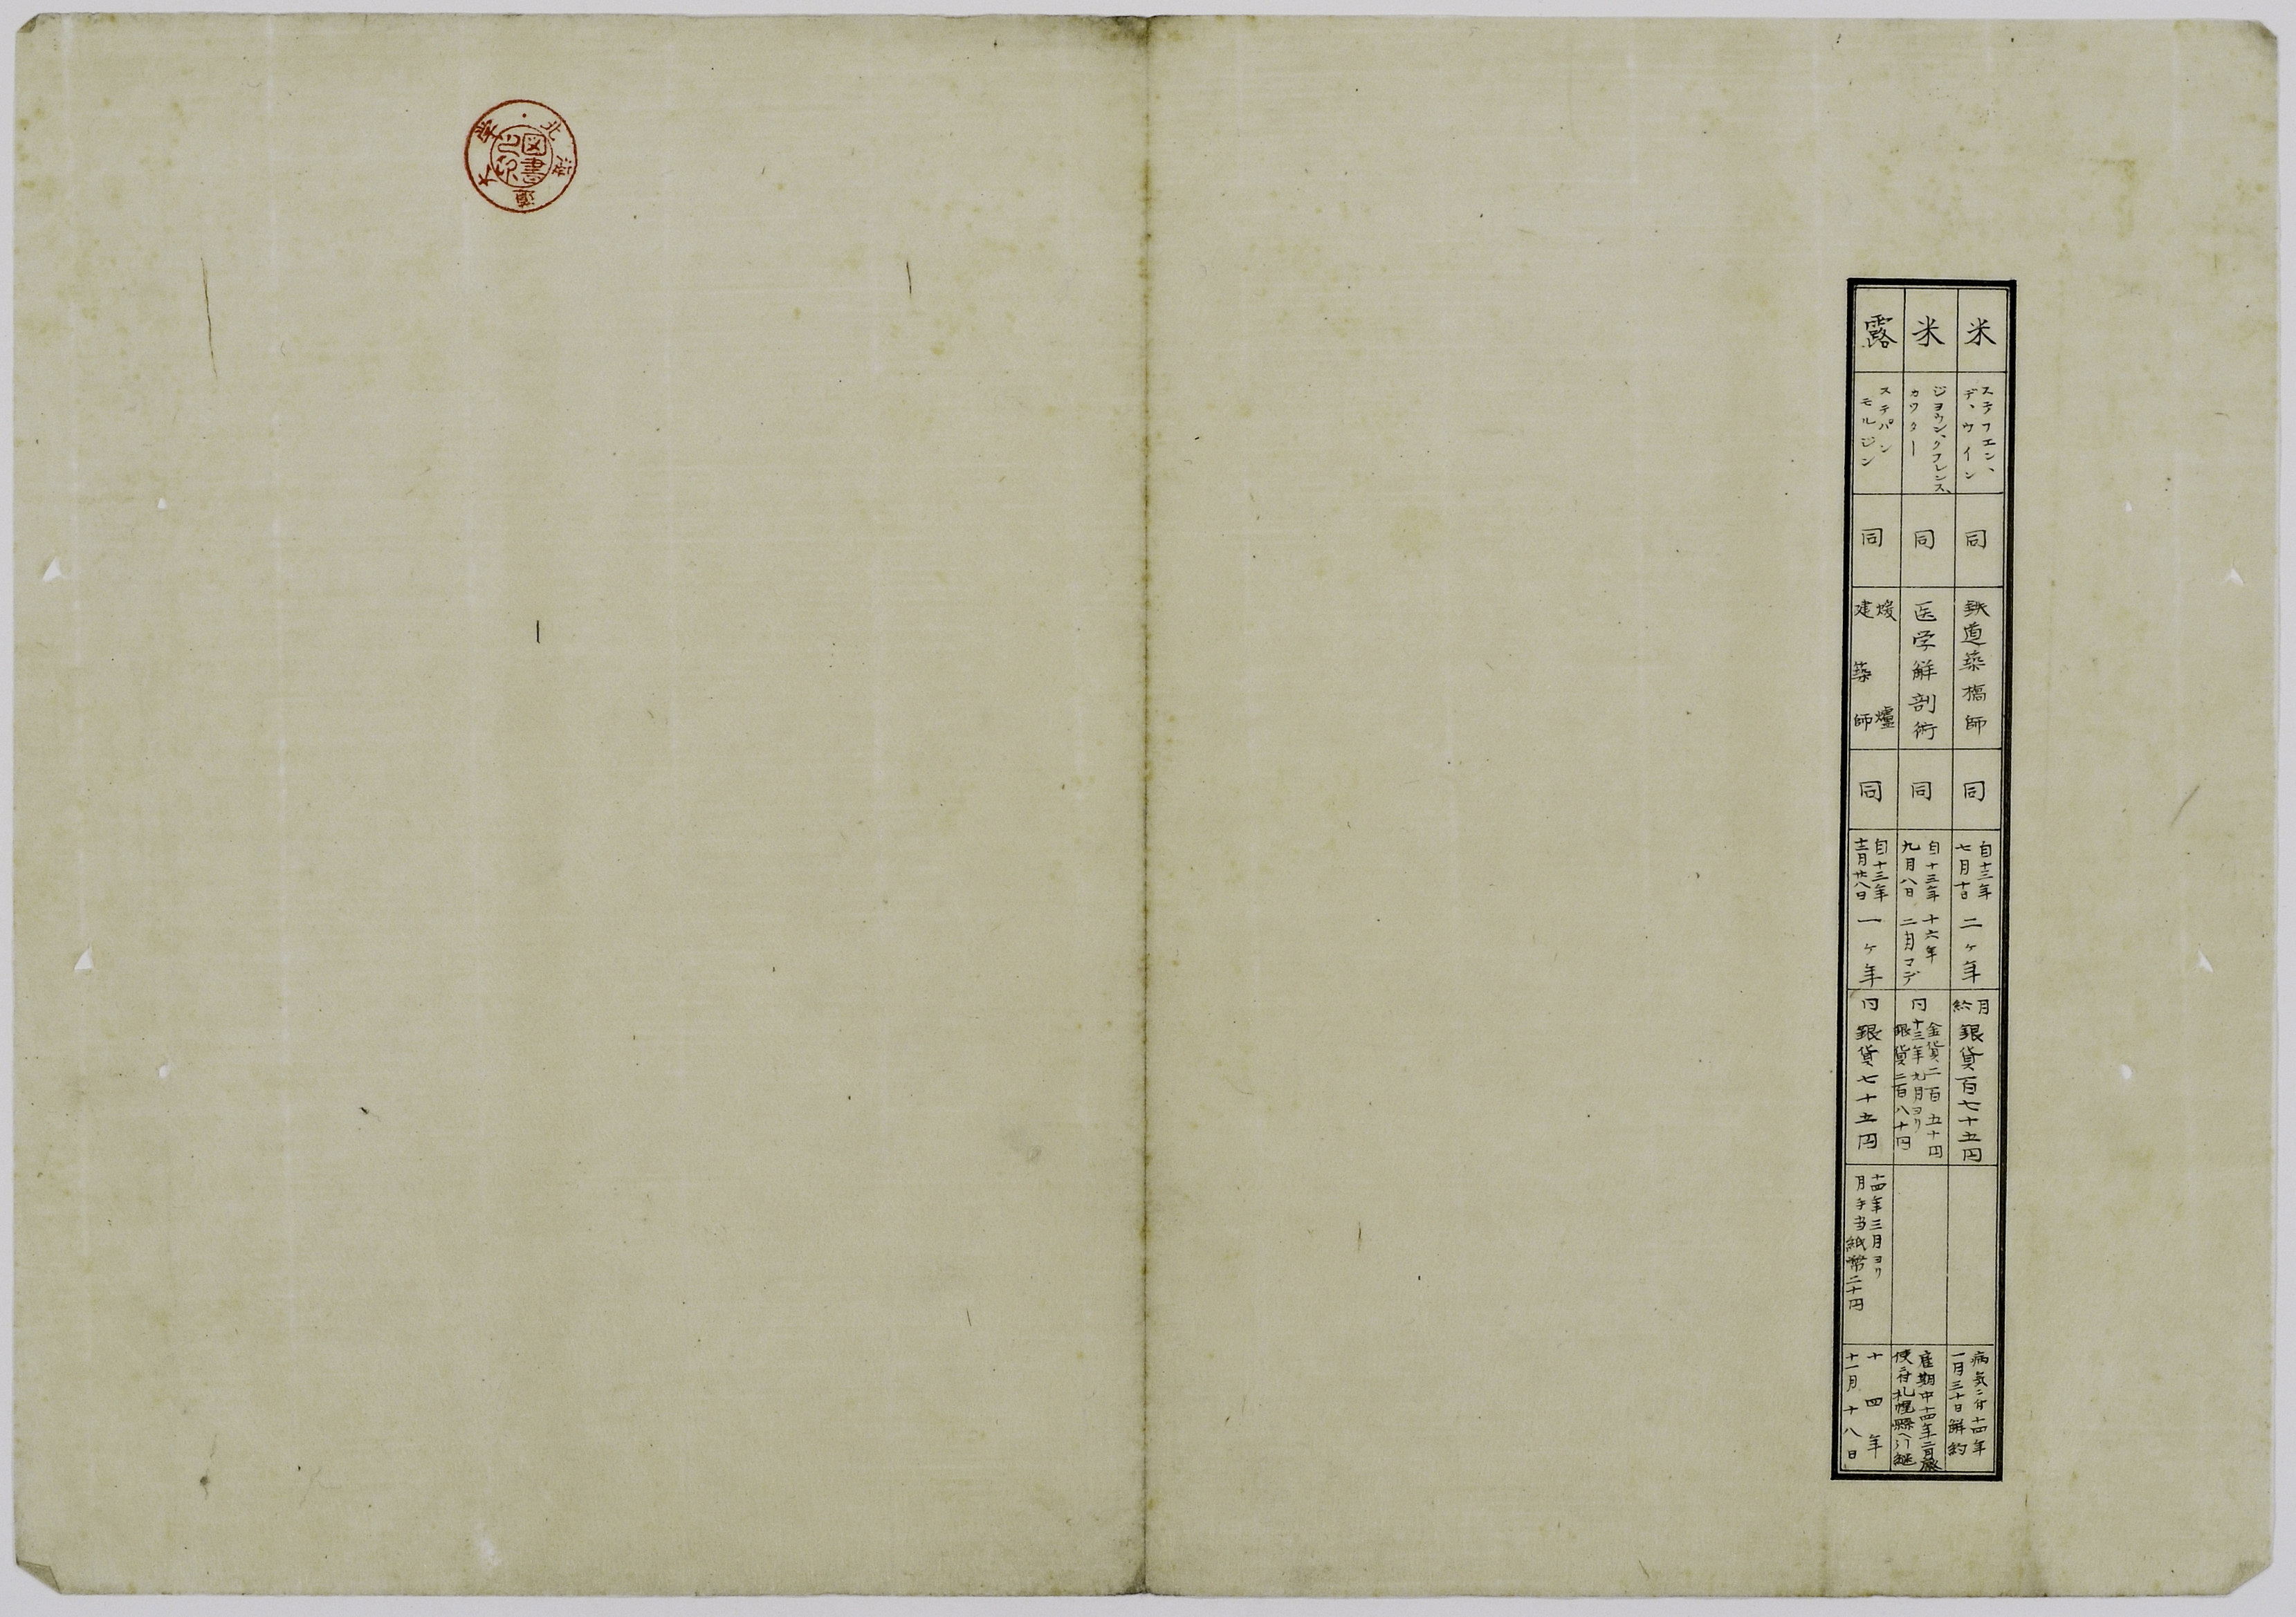 米
ステフエン、
デ、ウイン
同
鉄道築橋師
同
自十三年
七月十日
二ヶ年
月
給
銀貨百七十五円
病気ニ付十四年
一月三十日解約
米
ジヨウン、クラレンス、
カツター
同
医学解剖術
同
自十三年
九月八日
十六年
二月マデ
同
金貨二百五十円
十三年九月ヨリ
銀貨二百八十円
雇期中十四年二月廃
使ニ付札幌縣ヘ引継
露
ステパン
モルジン
同
煖爐
建築師
同
自十三年
十二月廿八日
一ヶ年
同
銀貨七十五円
十四年三月ヨリ
月手当紙幣二十円
十四年
十一月十八日
北海道大学
図書